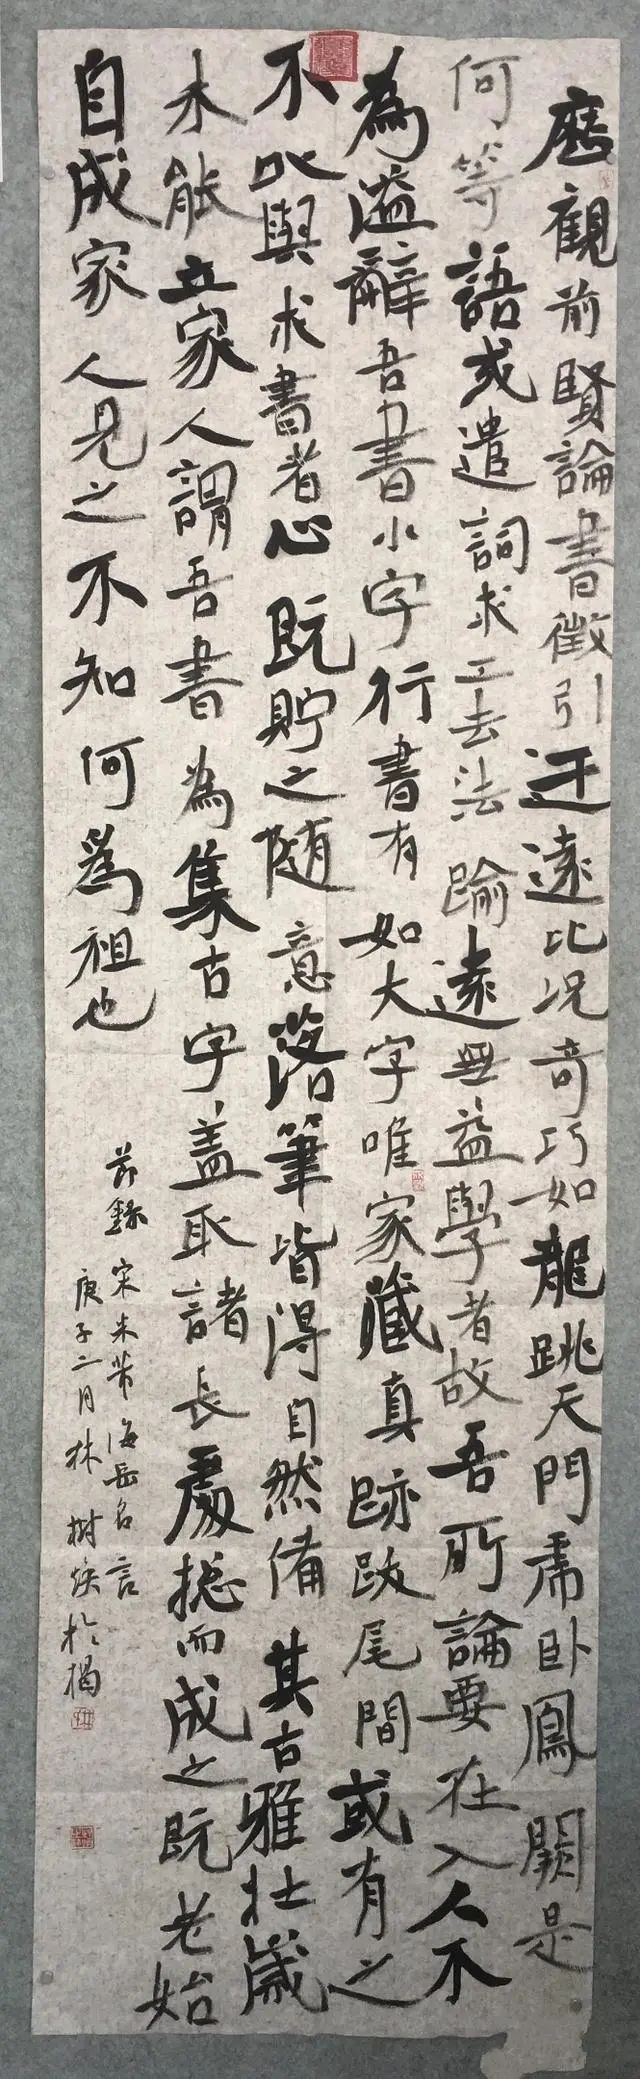 歷觀前賢論書徵引迂遠比況奇巧如龍跳天門虎卧鳳闕是
何等語或遣詞求工去法踰遠無益學者故吾所論要在入人不
為溢辭吾書小字行書有如大字唯家藏真跡跋尾間或有之
不以與求書者心既貯之随意落筆皆得自然備其古雅壮歲
未能立家人謂吾書為集古字盖取諸長處揔而成之既老始
自成家人見之不知何爲祖也
節錄宋米芾海岳名言
庚子二月林樹 於揭